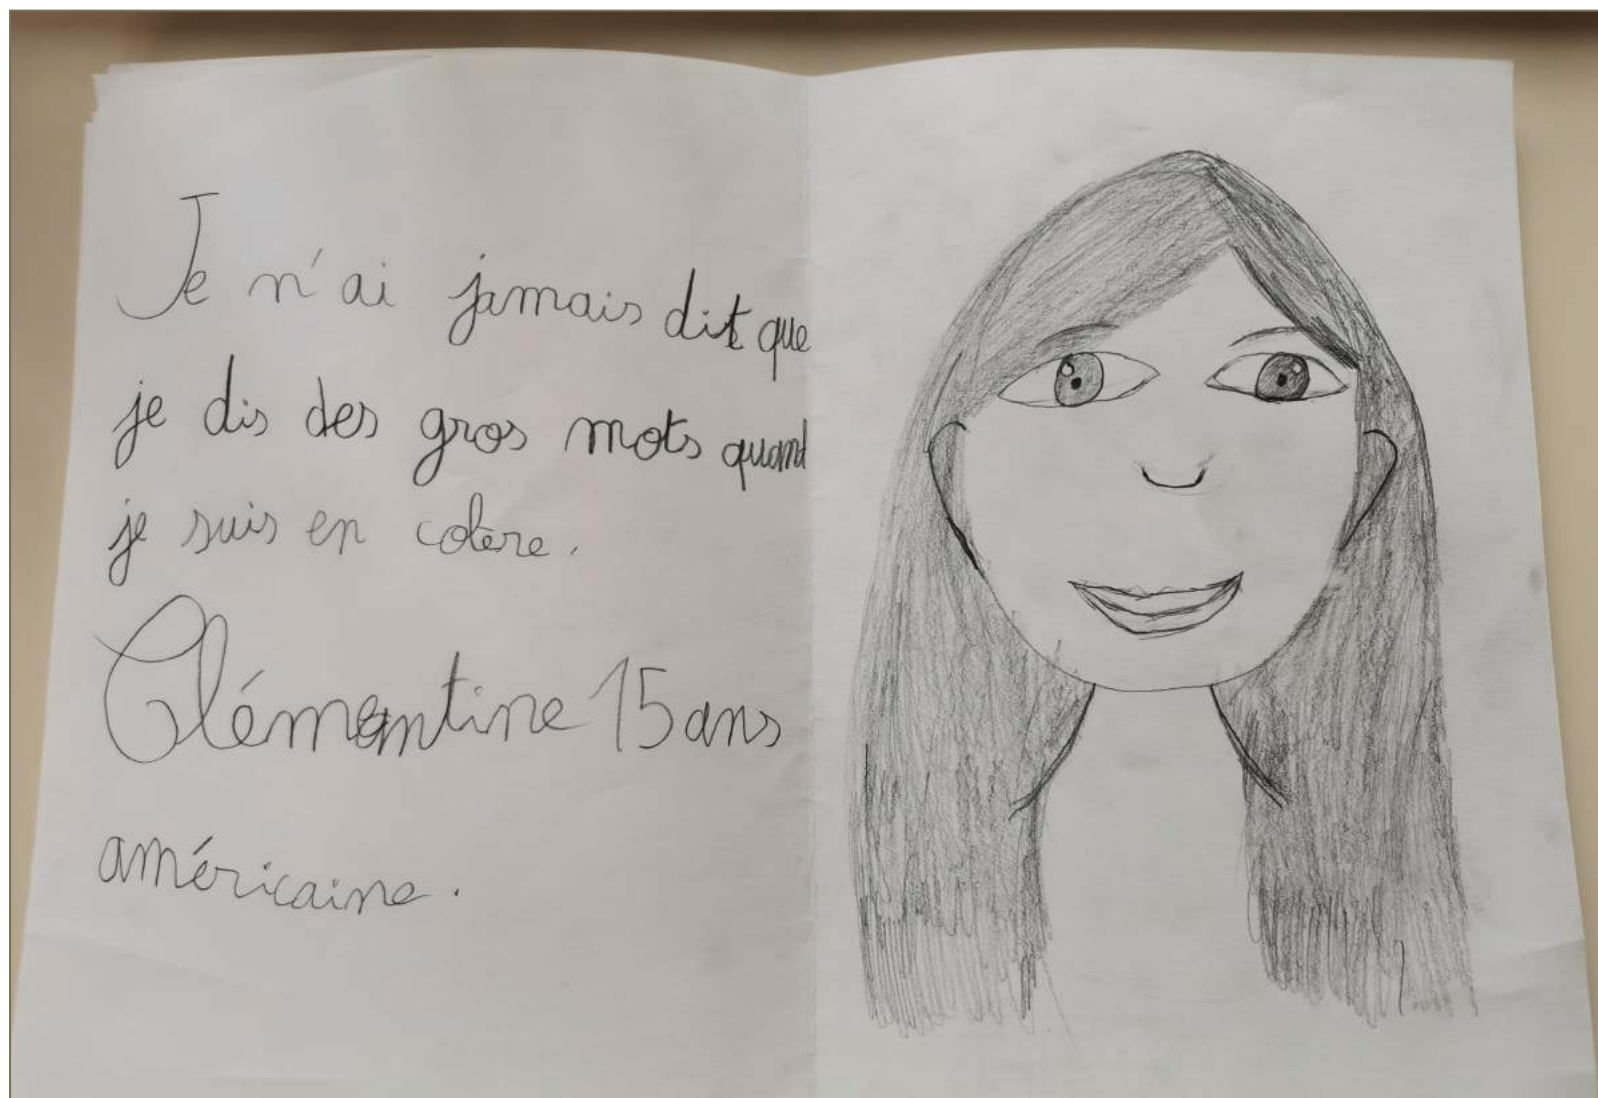 Je n'ai jamais dit que
je dis des gros mots quand
je suis en colère.
Clémentine 15 ans
américaine.